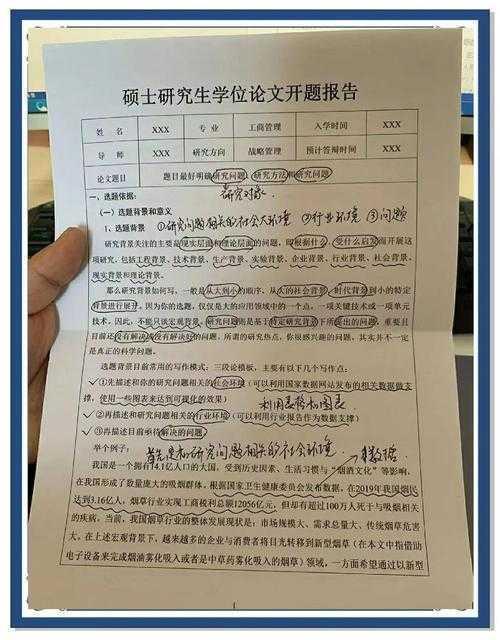 硕士研究生学位论文开题报告
姓 名 XXX 专 业 工商管理 入学时间 XXX
导 师 XXX 研究方向 战略管理 预计答辩时间 XXX
论文题目 题目最好明确研究问题、研究方法和研究问题
研究对象.
一、选题依据:
(一)选题背景和意义
1、选题背景 ①研究问题相关的社会大环境 ②行业环境 ③问题
研究背景关注的主要是现实层面和理论层面的问题,即根据什么、受什么启发而开展这
项研究,包括工程背景、技术背景、生产背景、实验背景、企业背景、行业背景、社会背景、
现实背景和理论背景。
那么研究背景如何写,一般是从大到小的顺序,从大的社会背景、时代背景到小的特定
背景进行展开,因为你的选题,仅仅是大的应用领域中的一个点,一项关键技术或一项单元
技术。因此,不能只谈宏观背景。研究问题则是基于特定研究背景下所提出的问题,重要且
目前还没有解决或没有解决好的问题,所谓的研究热点,你很感兴趣的问题,其实并不一定
是真正的科学问题。
选题背景目前常用的写作模式:三段论模板,主要有以下几个写作点:
①先描述和你的研究问题相关的社会环境(可以利用国家数据网站发布的相关数据做支
撑,使用一些图表来达到可视化的效果) 利用表格和图表.
②再描述和研究问题相关的行业环境(可以利用行业报告作为数据支撑)
③再描述目前亟待解决的问题.
举个例子: 首先是和研究问题相关的社会环境. 数据.
我国是一个拥有14.1亿人口的大国,受到历史因素、生活习惯与“烟酒文化”等影响,
在我国形成了数量庞大的吸烟群体,根据国家卫生健康委员会发布数据,在2019年我国烟民
达到3.16亿人,烟草行业实现工商税利总额12056亿元,但却有超过100万人死于与吸烟相关
的疾病。当前,我国烟草行业的整体发展现状是:市场规模大、需求总量大、传统烟草危害
大。在上述宏观背景下,越来越多的企业与消费者将目光转移到新型烟草(在本文中指借助
电子设备来完成烟油雾化吸入或者是中草药雾化吸入的烟草)领域,一方面希望通过以新型